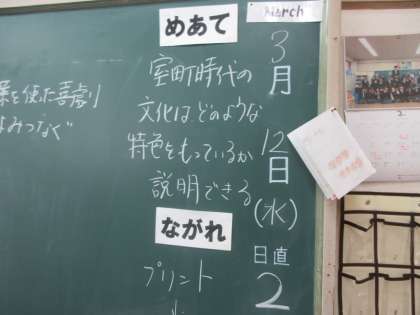 March
3
月
12
日
(水)
日直
2
めあて
室町時代の
文化はどのような
特色をもっているか
説明できる
ながれ
プリント
を使った喜劇
よみつなぐ